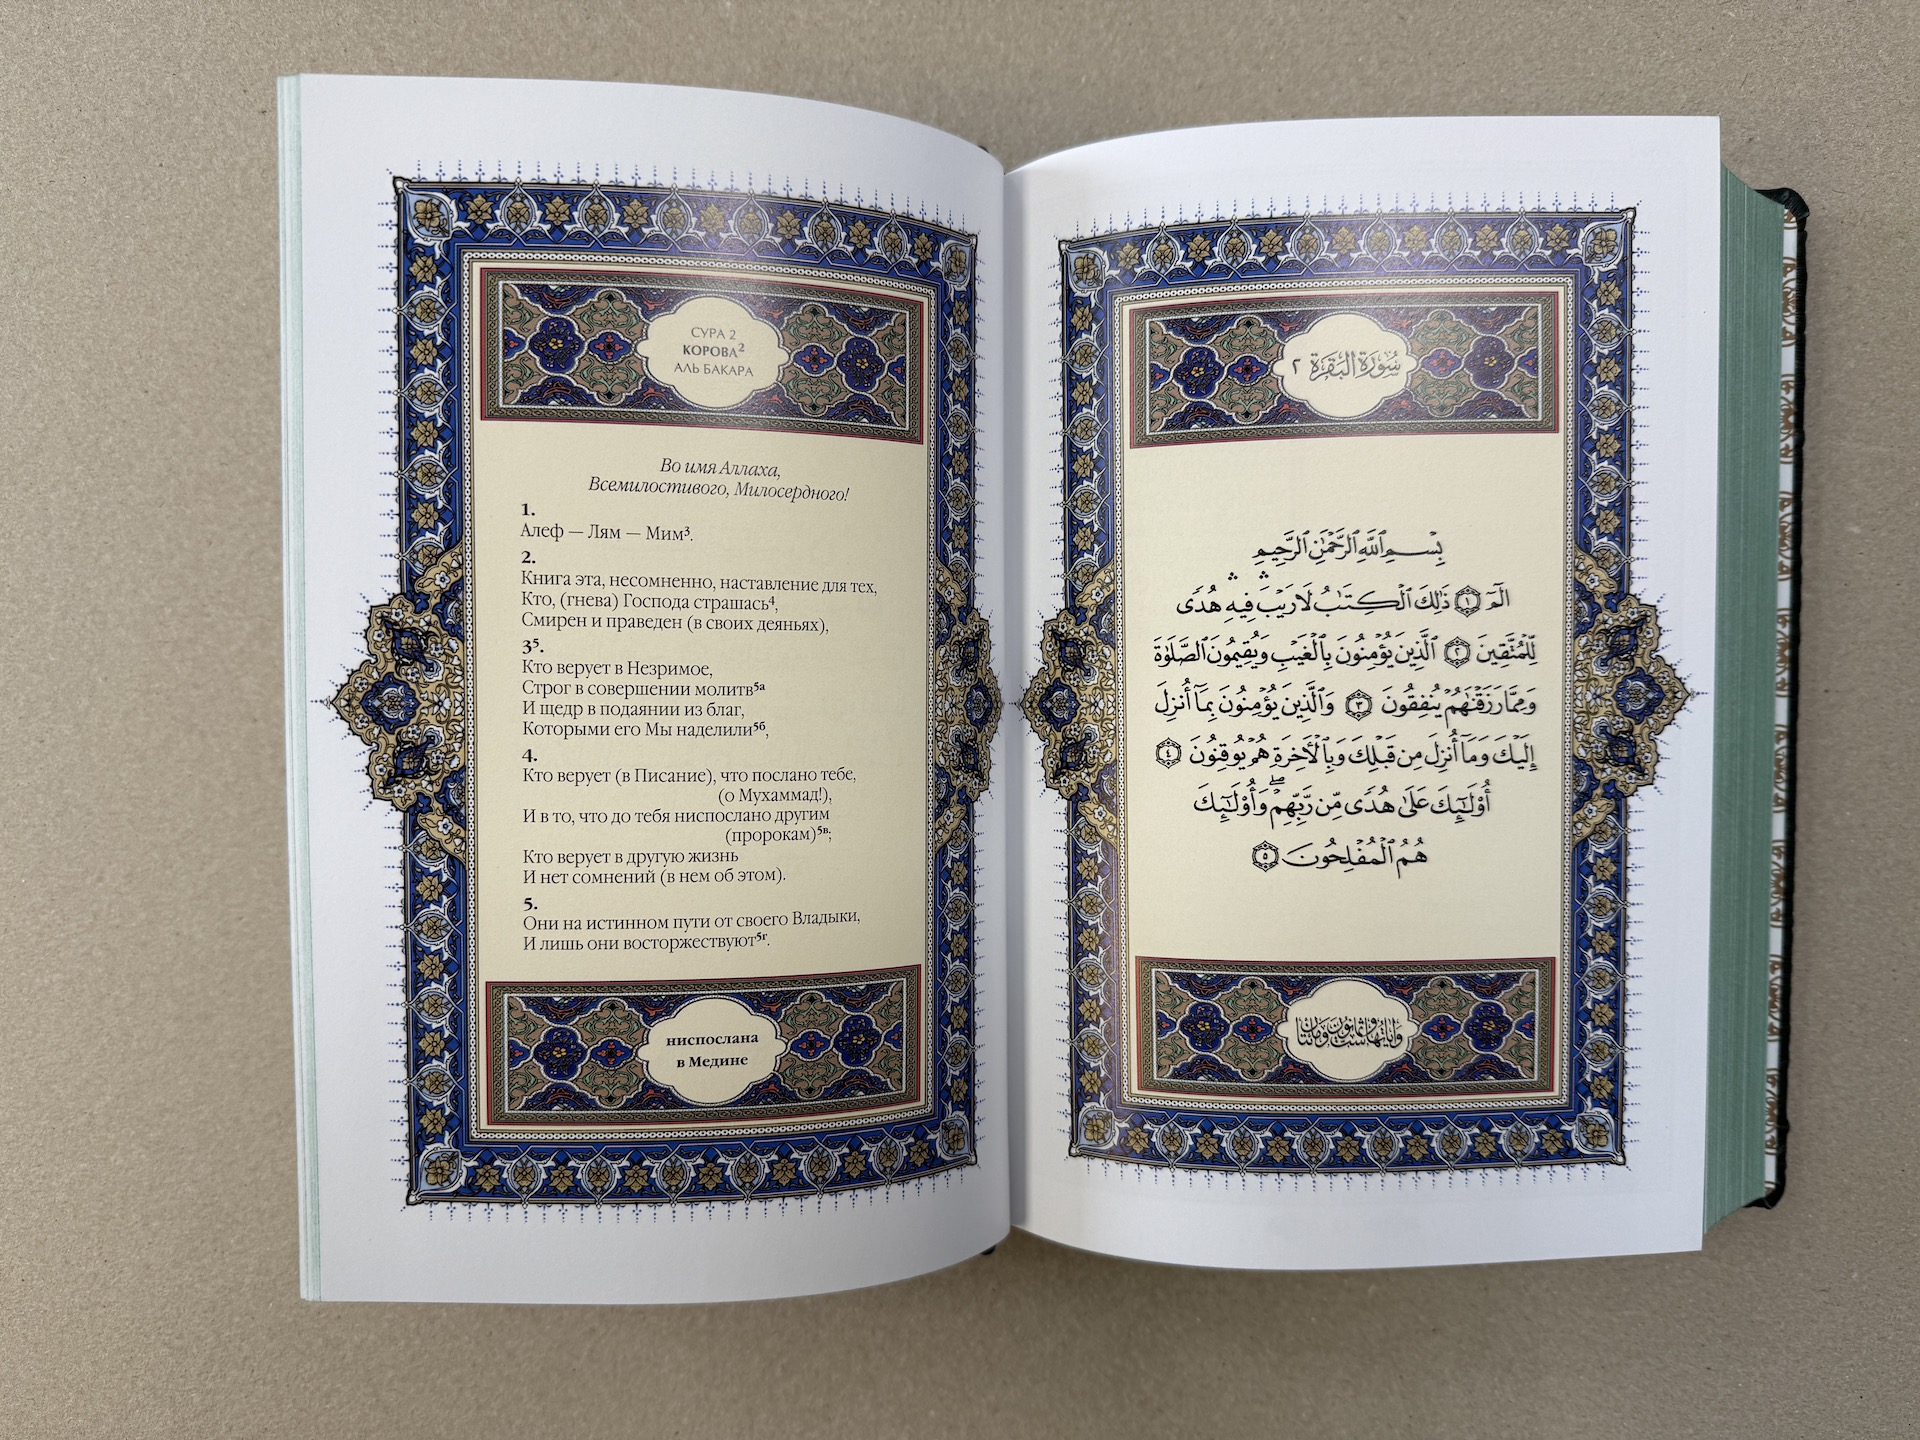 СУРА 2
КОРОВА²
АЛЬ БАКАРА
Во имя Аллаха,
Всемилостивого, Милосердного!
1.
Алеф — Лям — Мим³.
2.
Книга эта, несомненно, наставление для тех,
Кто, (гнева) Господа страшась⁴,
Смирен и праведен (в своих деяньях),
3⁵.
Кто верует в Незримое,
Строг в совершении молитв⁵ᵃ
И щедр в подаянии из благ,
Которыми его Мы наделили⁵⁶,
4.
Кто верует (в Писание), что послано тебе,
(о Мухаммад!),
И в то, что до тебя ниспослано другим
(пророкам)⁵ᵛ;
Кто верует в другую жизнь
И нет сомнений (в нем об этом).
5.
Они на истинном пути от своего Владыки,
И лишь они восторжествуют⁵ᵣ.
ниспослана
в Медине
سُورَةُ الْبَقَرَةِ ٢
بِسْمِ ٱللَّهِ ٱلرَّحْمَٰنِ ٱلرَّحِيمِ
الٓمٓ ١ ذَٰلِكَ ٱلْكِتَٰبُ لَا رَيْبَ ۛ فِيهِ ۛ هُدًى
لِّلْمُتَّقِينَ ٢ ٱلَّذِينَ يُؤْمِنُونَ بِٱلْغَيْبِ وَيُقِيمُونَ ٱلصَّلَوٰةَ
وَمِمَّا رَزَقْنَٰهُمْ يُنفِقُونَ ٣ وَٱلَّذِينَ يُؤْمِنُونَ بِمَآ أُنزِلَ
إِلَيْكَ وَمَآ أُنزِلَ مِن قَبْلِكَ وَبِٱلْأَخِرَةِ هُمْ يُوقِنُونَ ٤
أُو۟لَٰٓئِكَ عَلَىٰ هُدًى مِّن رَّبِّهِمْ ۖ وَأُو۟لَٰٓئِكَ
هُمُ ٱلْمُفْلِحُونَ ٥
وَآيَاتُهَا سِتٌّ وَثَمَانُونَ وَمِائَتَانِ